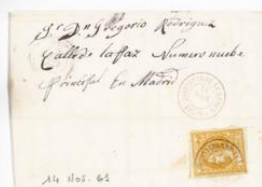 Sr. Dn. Gregorio Rodriguez
Calle de la Paz Numero nuebe
Principal En Madrid
14 Nov. 61